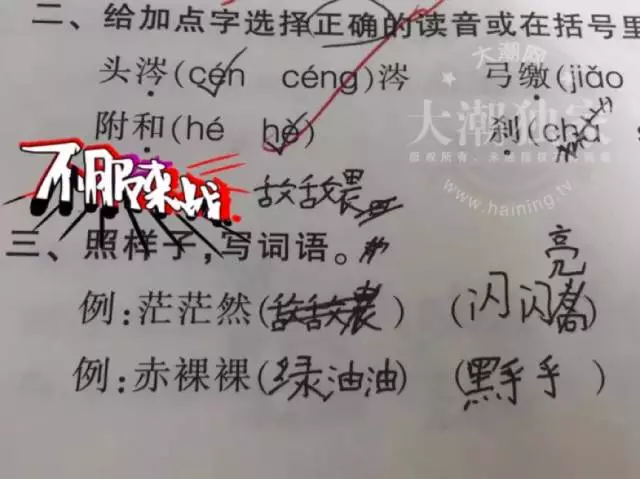 二、给加点字选择正确的读音或在括号里
大潮网
头涔(cén céng)涔 弓缴(jiǎo
大潮独家
附和(hé hè) 刹(chà
版权所有、未
www.haining.tv
不服来战
三、照样子,写词语。
亮
例:茫茫然( ) (闪闪
例:赤裸裸(绿油油) (黑乎乎)